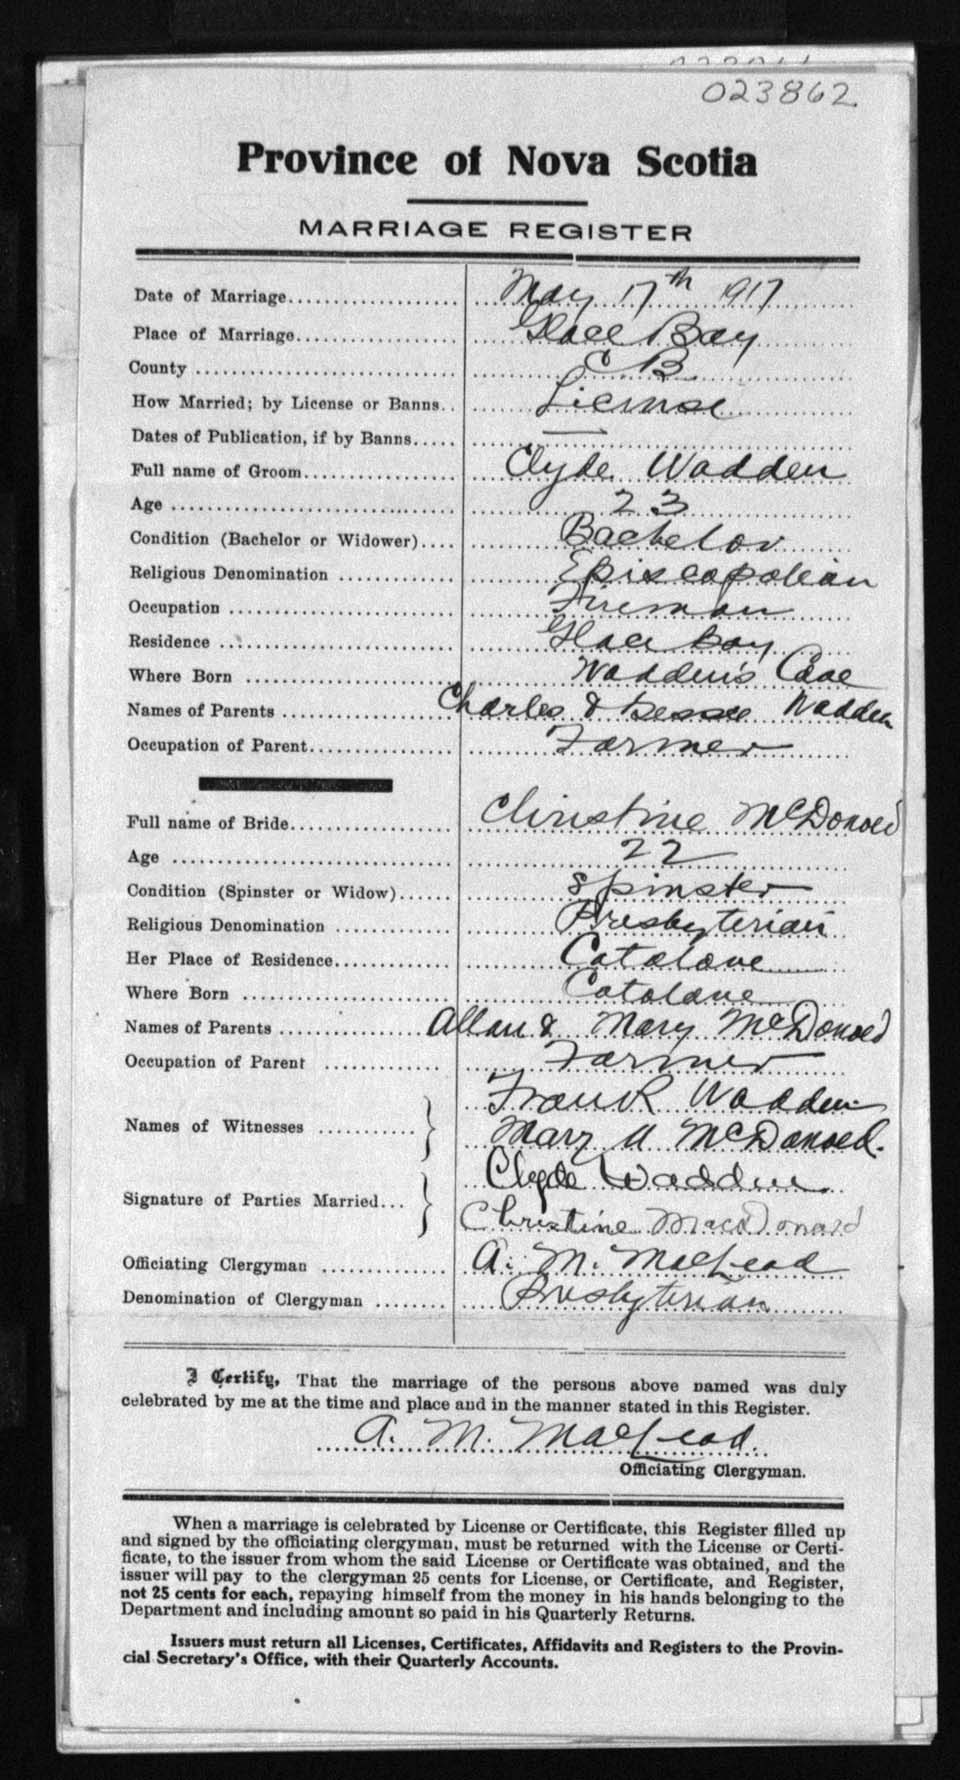 023862
Province of Nova Scotia
MARRIAGE REGISTER
Date of Marriage.................... May 17th 1917
Place of Marriage.................... Glace Bay
County .................... C B
How Married; by License or Banns.. License
Dates of Publication, if by Banns..... —
Full name of Groom.................... Clyde Wadden
Age .................... 23
Condition (Bachelor or Widower).... Bachelor
Religious Denomination .............. Episcopalian
Occupation .................... Fireman
Residence .................... Glace Bay
Where Born .................... Wadden's Cove
Names of Parents .................... Charles & Bessie Wadden
Occupation of Parent.................. Farmer
Full name of Bride.................... Christine McDonald
Age .................... 22
Condition (Spinster or Widow)...... Spinster
Religious Denomination .............. Presbyterian
Her Place of Residence.............. Catalone
Where Born .................... Catalone
Names of Parents ................ Allan & Mary McDonald
Occupation of Parent .............. Farmer
Frank Wadden
Names of Witnesses ...........
Mary A McDonald.
Clyde Wadden
Signature of Parties Married...
Christine MacDonald
Officiating Clergyman .............. A. M. MacLeod
Denomination of Clergyman ........ Presbyterian
I Certify, That the marriage of the persons above named was duly
celebrated by me at the time and place and in the manner stated in this Register.
A. M. MacLeod.
Officiating Clergyman.
When a marriage is celebrated by License or Certificate, this Register filled up
and signed by the officiating clergyman, must be returned with the License or Certi-
ficate, to the issuer from whom the said License or Certificate was obtained, and the
issuer will pay to the clergyman 25 cents for License, or Certificate, and Register,
not 25 cents for each, repaying himself from the money in his hands belonging to the
Department and including amount so paid in his Quarterly Returns.
Issuers must return all Licenses, Certificates, Affidavits and Registers to the Provin-
cial Secretary's Office, with their Quarterly Accounts.